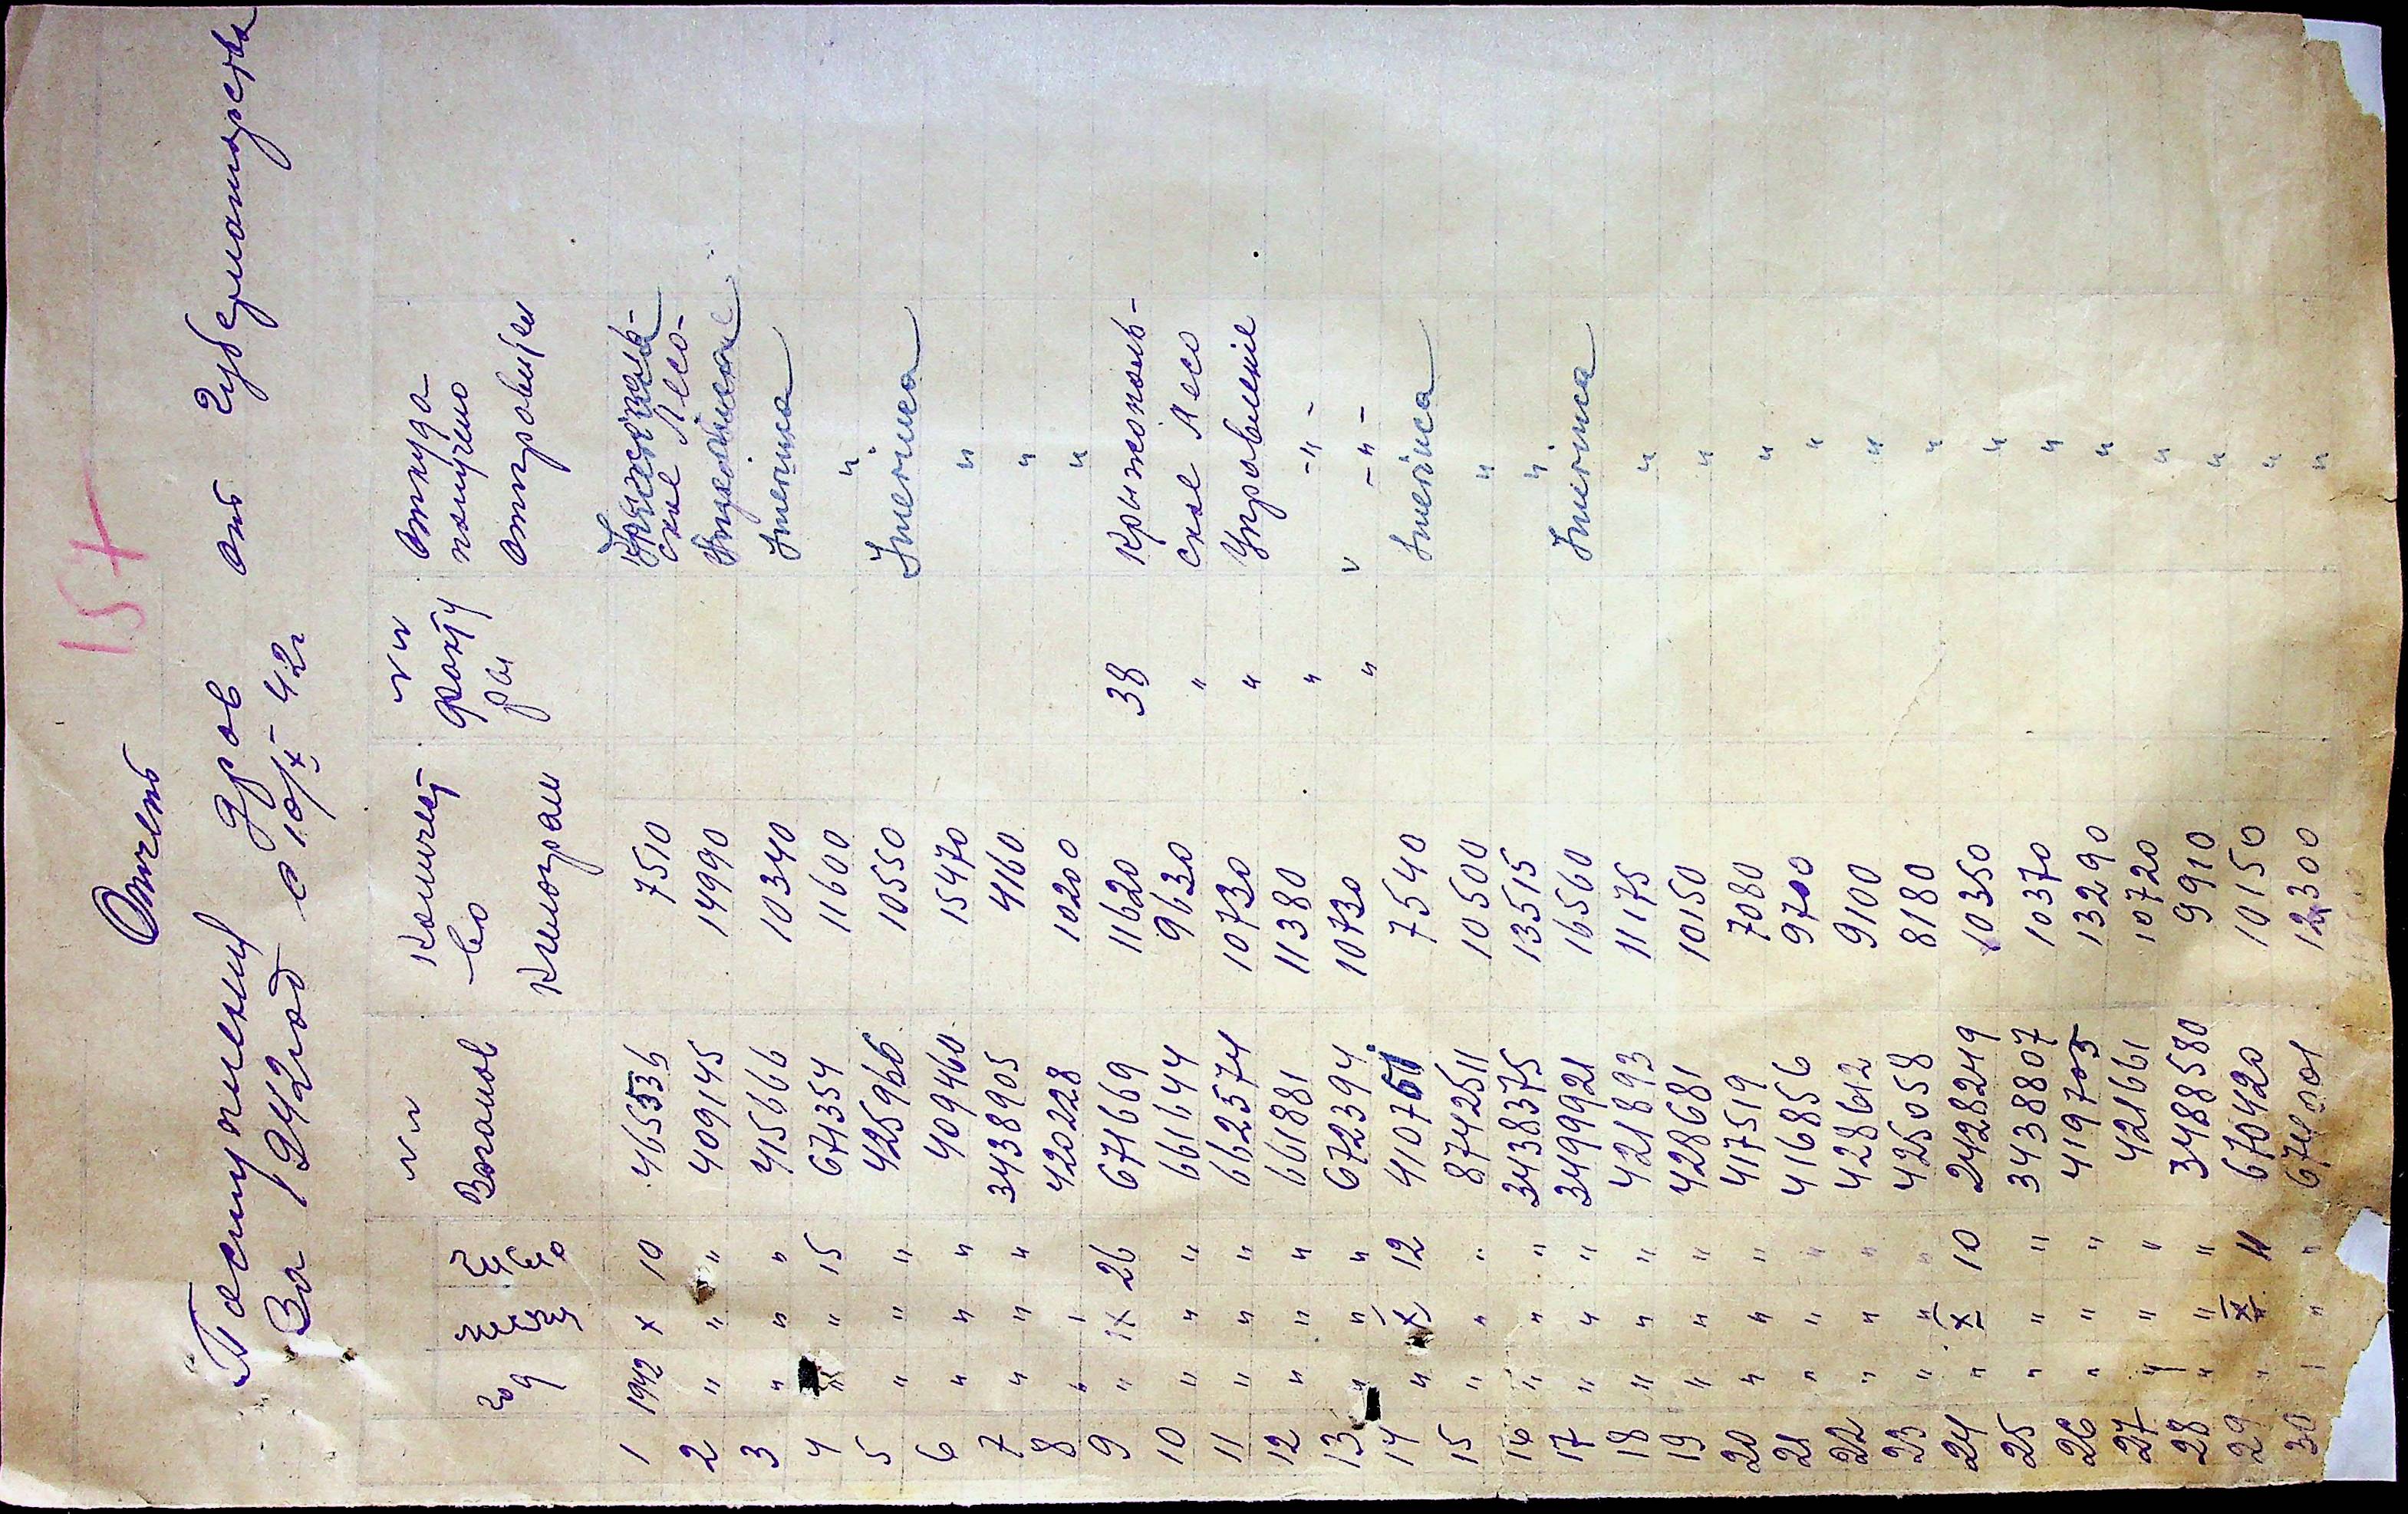 15+
Отчет
Поступления дров от Губернаторства
За 1942 год с 10/х - 42г
год месяц число №№ Вагонов Количество Килограм №№ фактуры Откуда получено отправител
1 1942 х 10 465536 7510
2 " " " 409145 14990
3 " " " 415666 10340 Жмеринка
4 " " 15 671354 11600 "
5 " " " 425966 10550 Жмеринка
6 " " " 409460 15470 "
7 " " " 3438905 4160 "
8 " " 420228 10200 "
9 " IX 26 671669 11620 38 Крыжополь-
10 " " " 661644 9630 " ское Лесо
11 " " " 662574 10730 " Управление
12 " " " 661881 11380 " -"-
13 " " " 672394 10730 " -"-
14 " X 12 410761 7540 Жмеринка
15 " " " 8742511 10500 "
16 " " " 3438375 13515 "
17 " " " 3499921 16560 Жмеринка
18 " " " 421893 11175 "
19 " " " 428681 10150 "
20 " " " 417519 7080 "
21 " " " 416856 9700 "
22 " " " 428612 9100 "
23 " " " 425058 8180 "
24 " X 10 2428249 10350 "
25 " " " 3438807 10370 "
26 " " " 419705 13290 "
27 " " " 421661 10720 "
28 " " " 3488580 9910 "
29 " X 11 670420 10150 "
30 " " " 12300 "